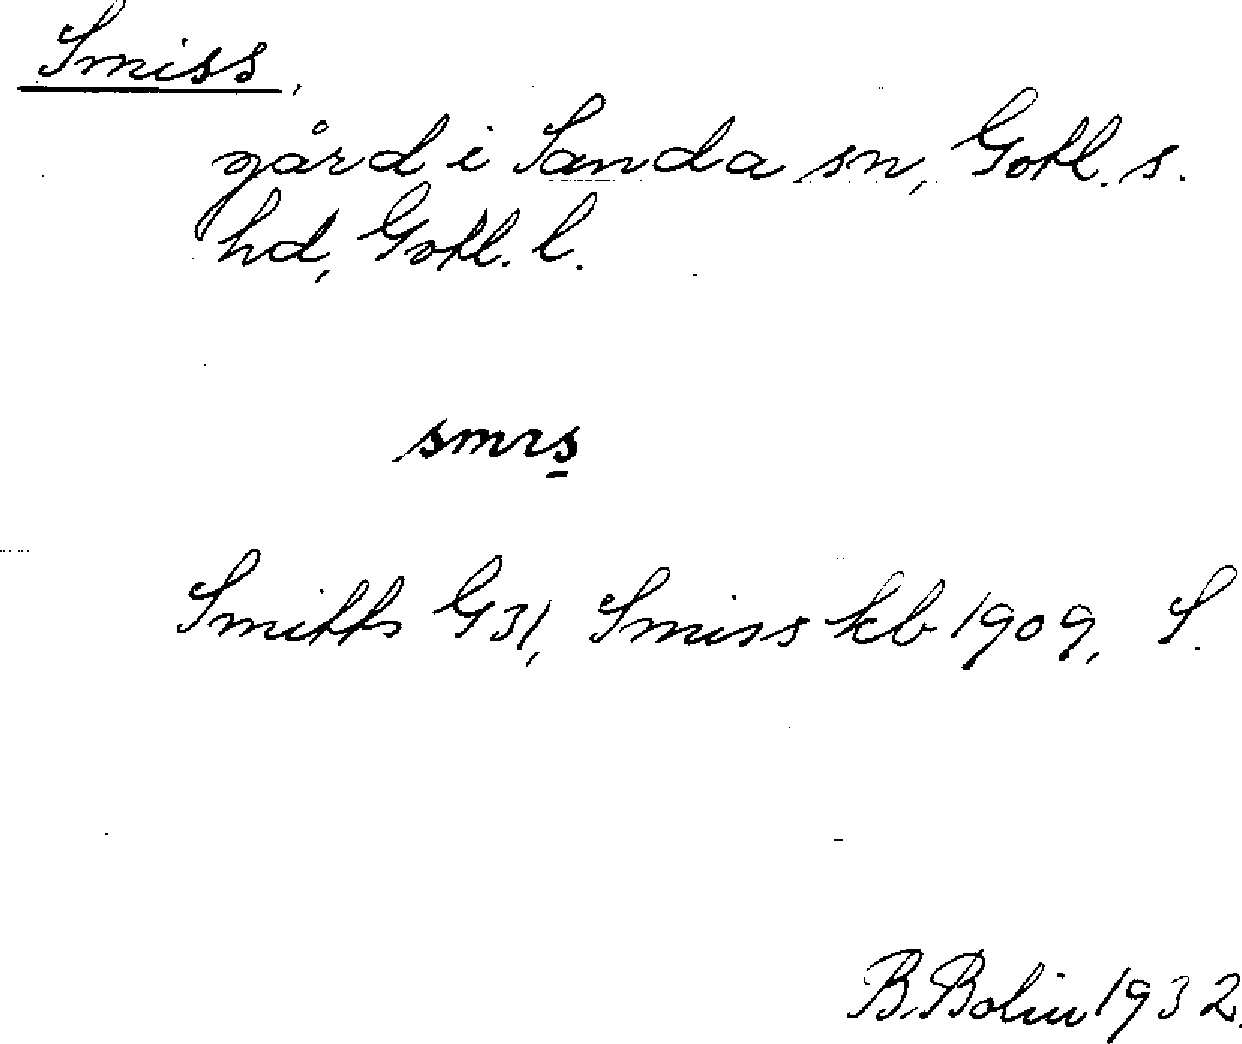 Smiss,
gård i Sanda sn, Gotl. s.
hd, Gotl. l.
smıs
Smitts G31, Smiss kb 1909, S.
B. Bolin 1932.